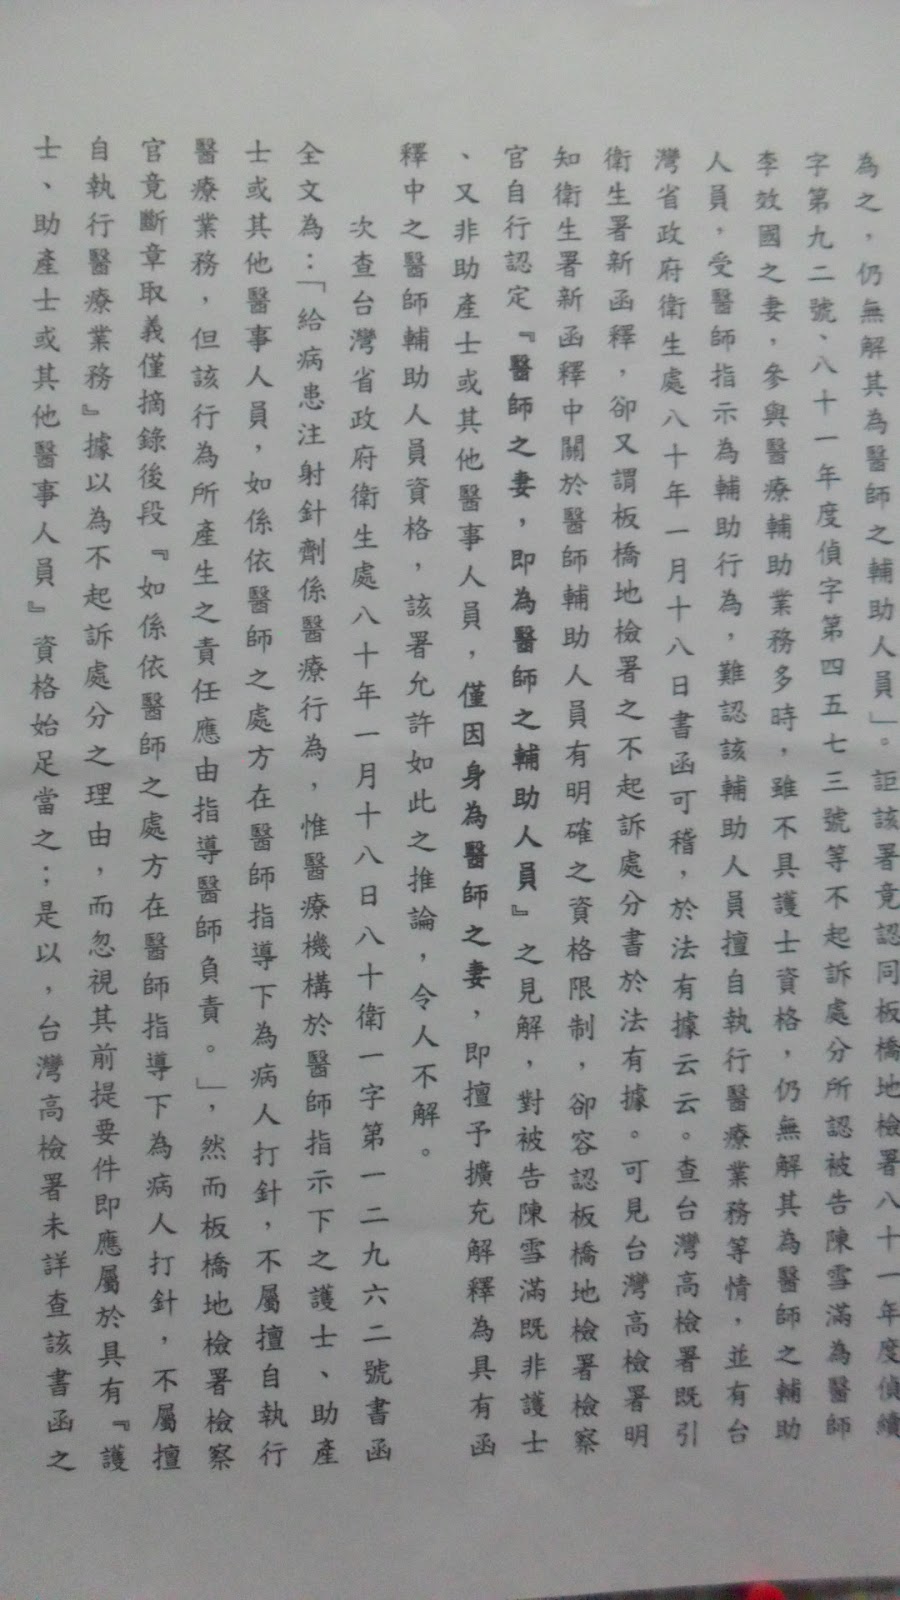 為之，仍無解其為醫師之輔助人員」。詎該署竟認同板橋地檢署八十一年度偵續
字第九二號、八十一年度偵字第四五七三號等不起訴處分所認被告陳雪滿為醫師
李效國之妻，參與醫療輔助業務多時，雖不具護士資格，仍無解其為醫師之輔助
人員，受醫師指示為輔助行為，難認該輔助人員擅自執行醫療業務等情，並有台
灣省政府衛生處八十年一月十八日書函可稽，於法有據云云。查台灣高檢署既引
衛生署新函釋，卻又謂板橋地檢署之不起訴處分書於法有據。可見台灣高檢署明
知衛生署新函釋中關於醫師輔助人員有明確之資格限制，卻容認板橋地檢署檢察
官自行認定『醫師之妻，即為醫師之輔助人員』之見解，對被告陳雪滿既非護士
、又非助產士或其他醫事人員，僅因身為醫師之妻，即擅予擴充解釋為具有函
釋中之醫師輔助人員資格，該署允許如此之推論，令人不解。
次查台灣省政府衛生處八十年一月十八日八十衛一字第一二九六二號書函
全文為：「給病患注射針劑係醫療行為，惟醫療機構於醫師指示下之護士、助產
士或其他醫事人員，如係依醫師之處方在醫師指導下為病人打針，不屬擅自執行
醫療業務，但該行為所產生之責任應由指導醫師負責。」，然而板橋地檢署檢察
官竟斷章取義僅摘錄後段『如係依醫師之處方在醫師指導下為病人打針，不屬擅
自執行醫療業務』據以為不起訴處分之理由，而忽視其前提要件即應屬於具有『護
士、助產士或其他醫事人員』資格始足當之；是以，台灣高檢署未詳查該書函之